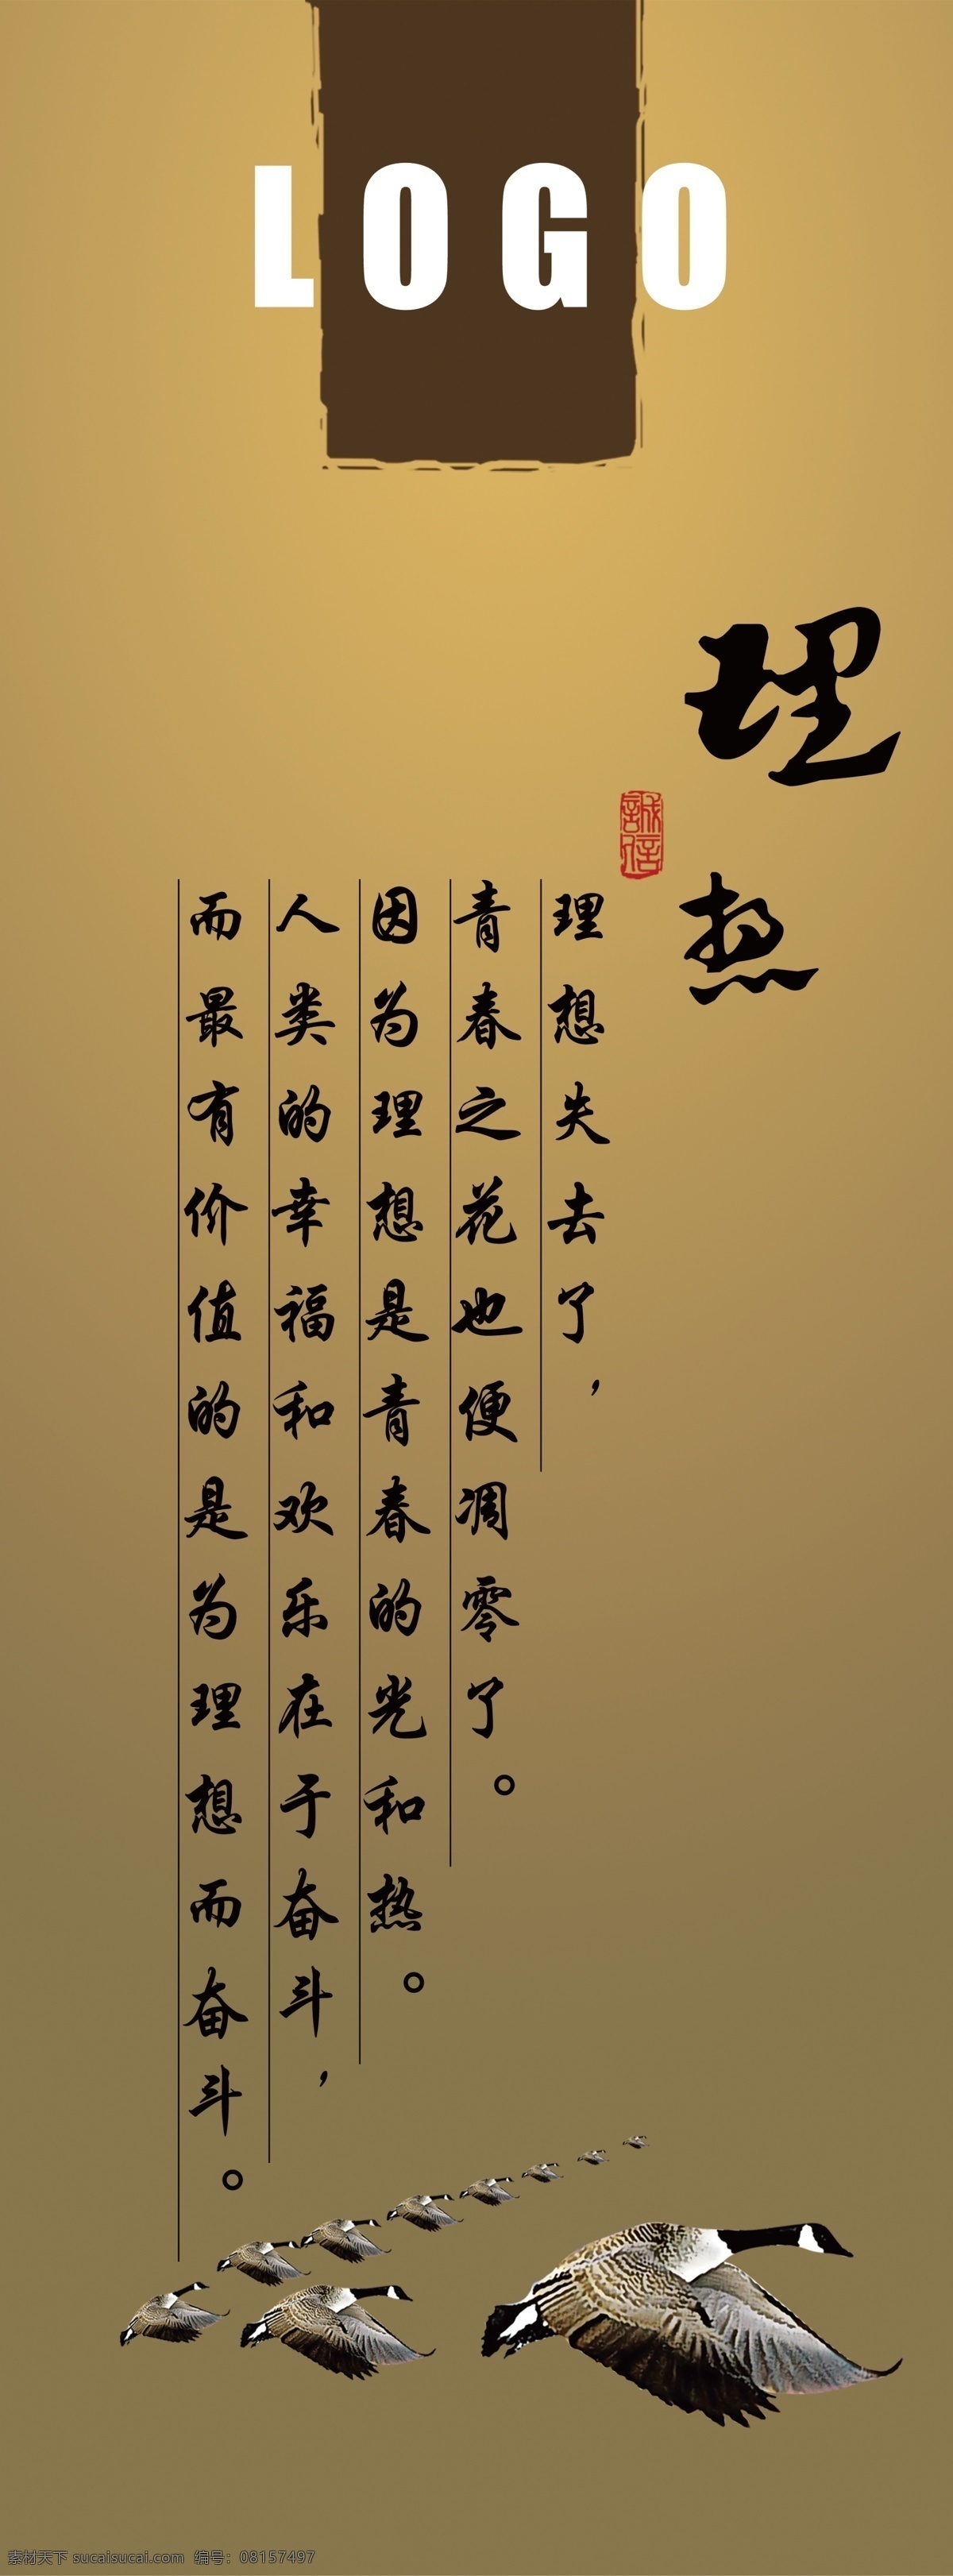 LOGO
理
热
誠信
理想失去了，
青春之花也便凋零了。
因为理想是青春的光和热。
人类的幸福和欢乐在于奋斗，
而最有价值的是为理想而奋斗。
素材天下 sucaisucai.com 编号：08157497